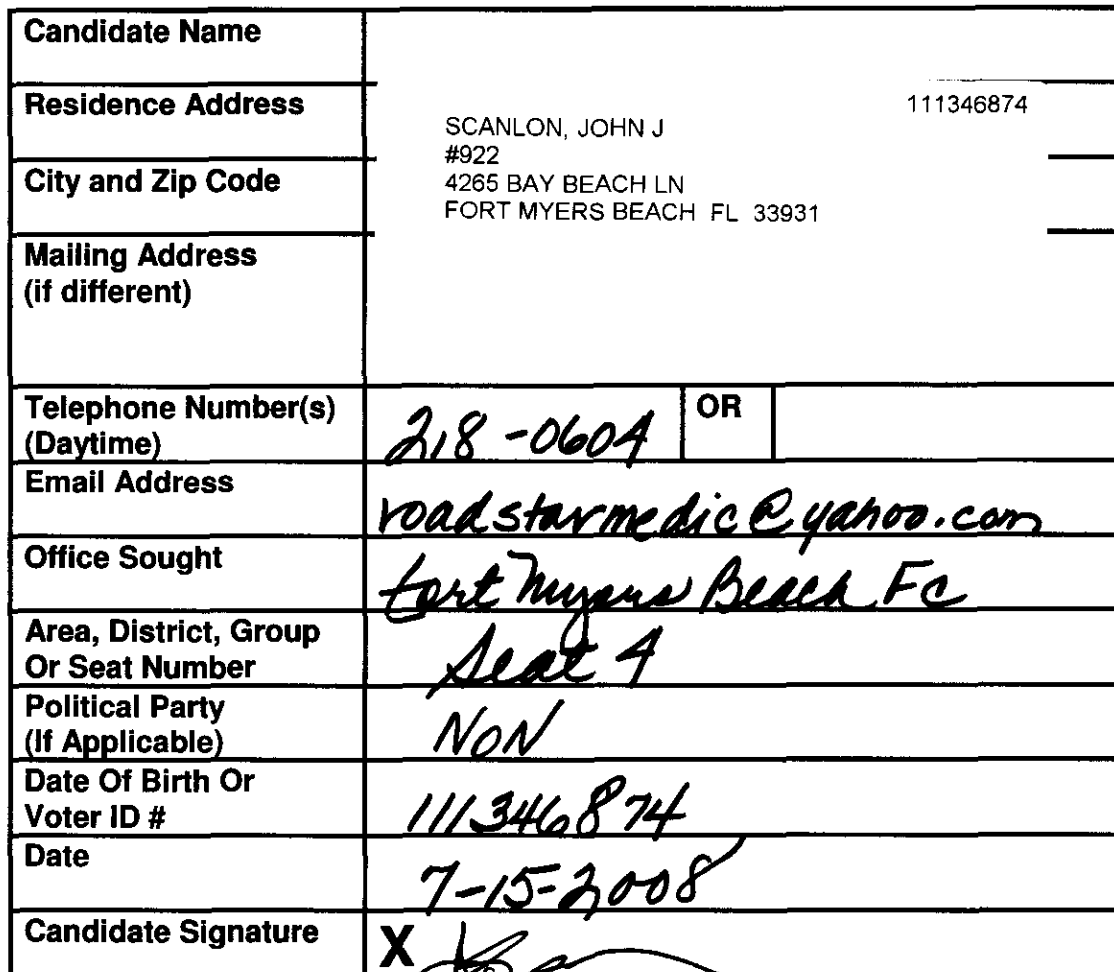 Candidate Name
Residence Address
111346874
SCANLON, JOHN J
#922
City and Zip Code
4265 BAY BEACH LN
FORT MYERS BEACH FL 33931
Mailing Address
(if different)
Telephone Number(s)
(Daytime)
218-0604
OR
Email Address
roadstarmedic@yahoo.com
Office Sought
Fort Myers Beach FC
Area, District, Group
Or Seat Number
Seat 4
Political Party
(If Applicable)
NON
Date Of Birth Or
Voter ID #
111346874
Date
7-15-2008
Candidate Signature
X